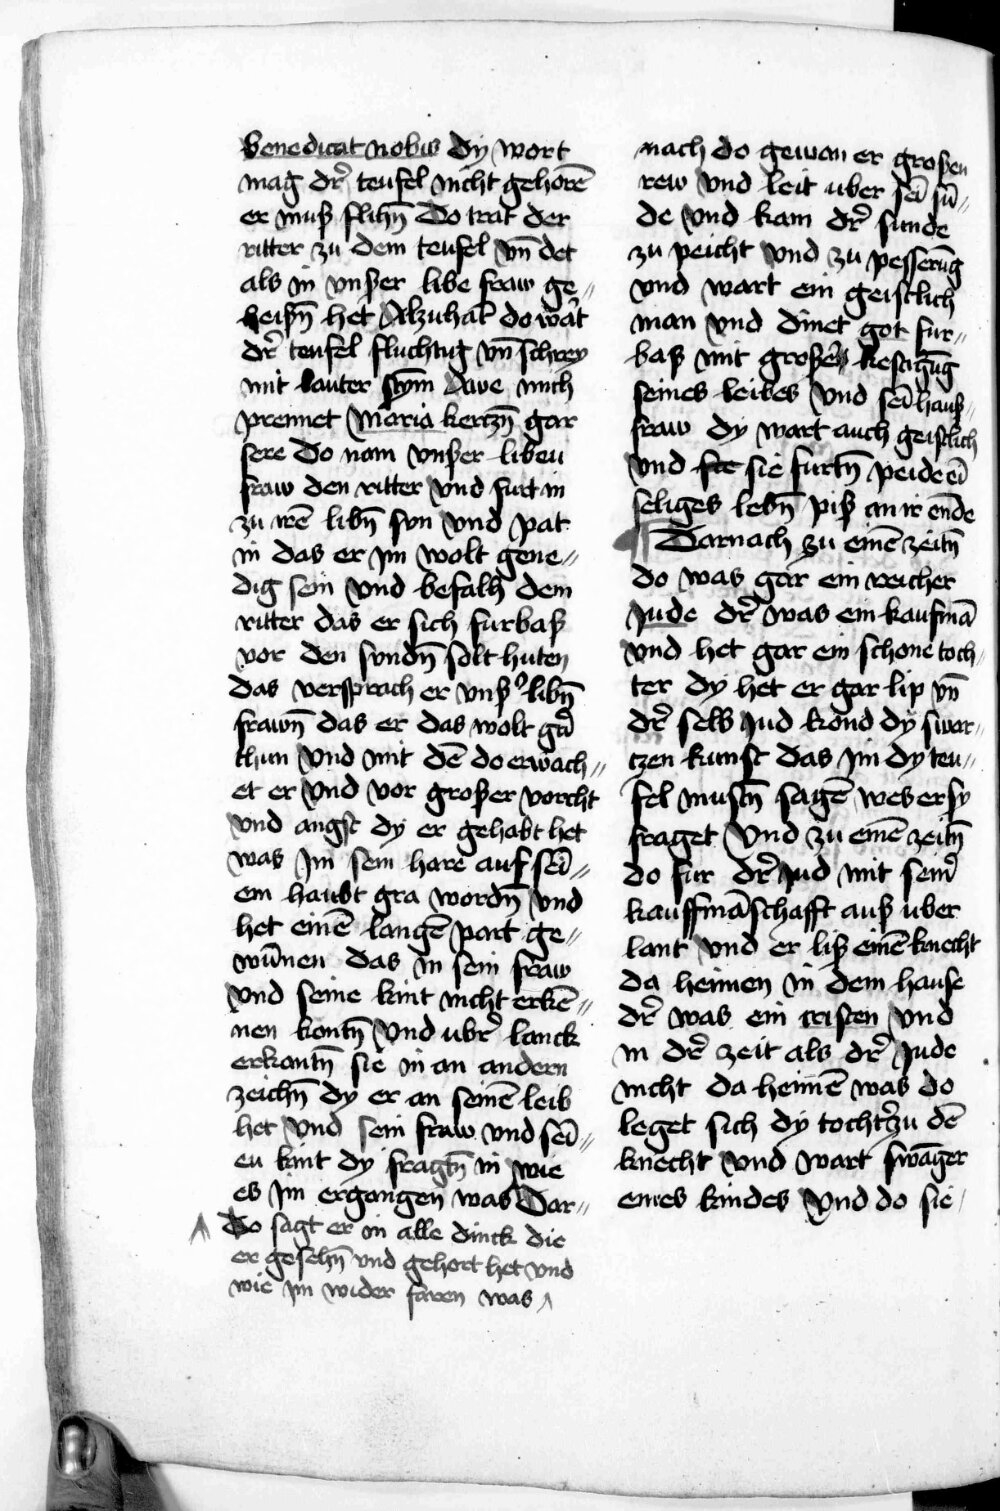 benedicat nobis dy wort
mag dr̃ teufel nicht gehorē
er muß flihn̄ Do trat der
ritter zu dem teufel vn̄ det
als in vnßer libe fraw ge⸗
heißn̄ het Alzuhāt do wāt
dr̃ teufel fluchtig vn̄ schrey
mit lauter stym̄ Awe mich
prennet Maria kertzn̄ gar
sere Do nam vnßer libeu
fraw den ritter vnd furt in
zu irē libn̄ svn vnd pat
in das er im wolt gene⸗
dig sein vnd befalh dem
ritter das er sich furbaß
vor den svndn̄ solt huten
das versprach er vnß̾ libn̄
frawn̄ das er das wolt gā
thun vnd mit dē do erwach⸗
et er vnd vor großer vorcht
vnd angst dy er gehabt het
was Im sein hare auf sei̅⸗
em haubt gra wordn̄ vnd
het einē langē part ge⸗
wūnen das in sein fraw
vnd seine kint nicht erkē⸗
nen kontn̄ vnd ubr̃ lanck
erkantn̄ sie in an andern
zeichn̄ dy er an seinē leib
het vnd sein fraw vnd sei̅⸗
eu kint dy fragtn̄ in wie
es im ergangen was Dar⸗
Do sagt er in alle dinck die
er gesehn̄ vnd gehort het vnd
wie im wider faren was
nach do gewan er großen
rew vnd leit uber sei̅ sū⸗
de vnd kam dr̃ sunde
zu peicht vnd zu pesserūg
vnd wart ein geistlich
man vnd dinet got fur⸗
baß mit großer kestigūg
seines leibes vnd sei̅ hauß⸗
fraw dy wart auch geistlich
vnd sie furtn̄ peide ei̅
seliges lebn̄ piß an ir ende
Darnach zu einē zeitn̄
do was gar ein reicher
Jude dr̃ was ein kaufmā
vnd het gar ein schone toch⸗
ter dy het er gar lip vn̄
dr̃ selb Jud kond dy swar⸗
tzen kunst das im dy teu⸗
fel mustn̄ sagē wes er sy
fraget Vnd zu einē zeitn̄
do fur dr̃ Jud mit seinr̃
kauffmāschafft auß uber
lant vnd er liß einē knecht
da heimen in dem hause
dr̃ was ein cristen vnd
in dr̃ zeit als dr̃ Jude
nicht da heimē was do
leget sich dy tochtr̃ zu dē
knecht vnd wart swāger
eines kindes Vnd do sie